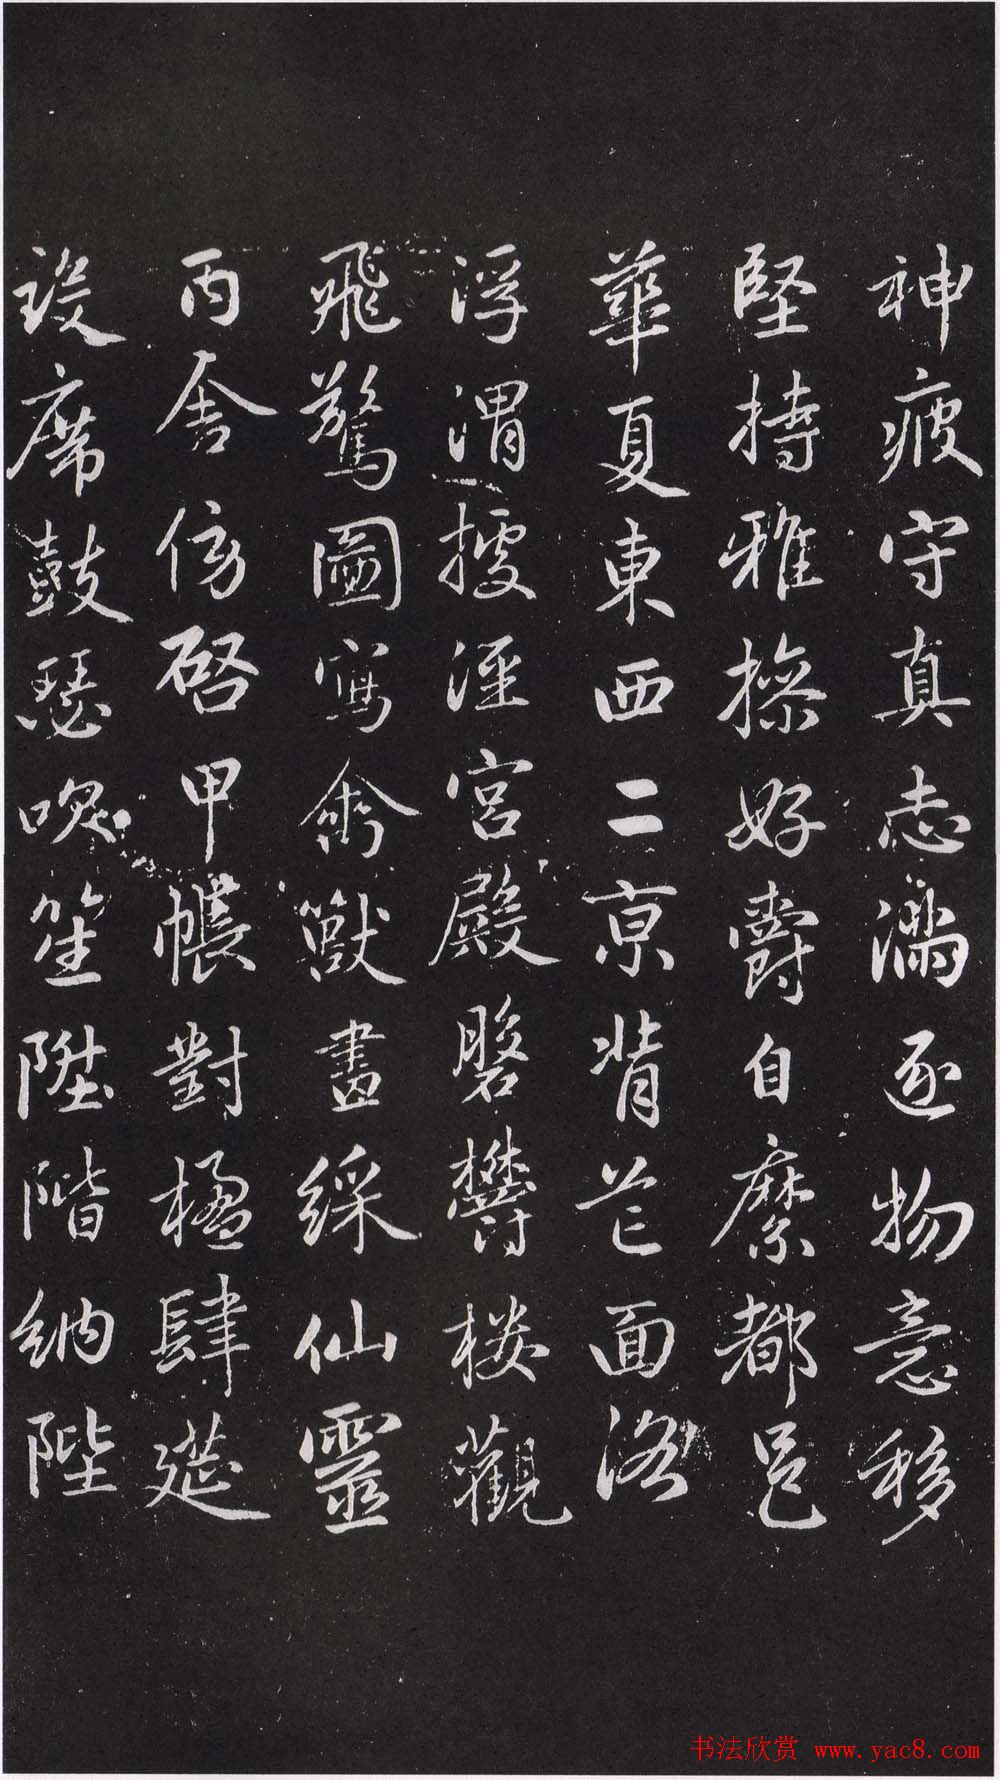 神疲守真志滿逐物意移
堅持雅操好爵自縻都邑
華夏東西二京背芒面洛
浮渭據涇宮殿磐欝樓觀
飛驚圖寫禽獸畫綵仙靈
丙舍傍啓甲帳對楹肆筵
設席鼓瑟吹笙陞階納陛
书法欣赏 www.yac8.com